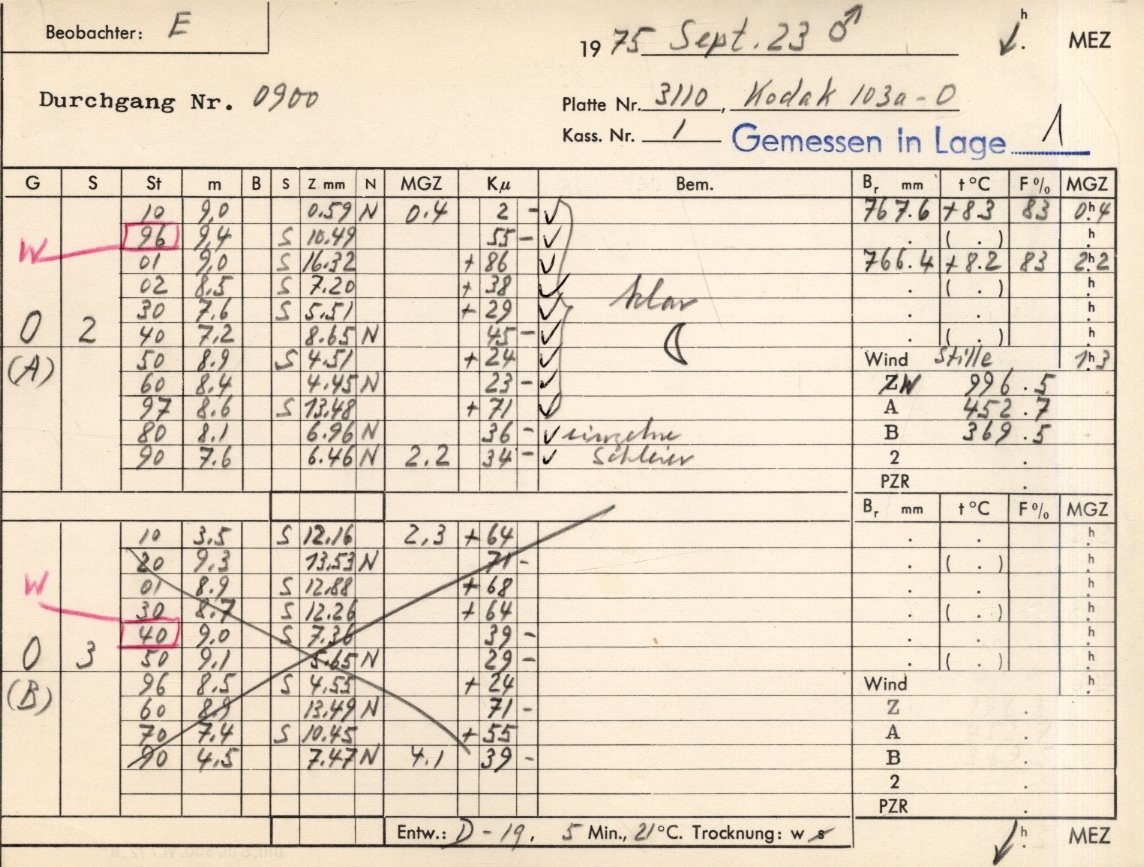 Beobachter: E
1975 Sept. 23 ♂ h MEZ
Durchgang Nr. 0900
Platte Nr. 3110, Kodak 103a-O
Kass. Nr. 1 Gemessen in Lage 1
G S St m B S Z mm N MGZ Kμ Bem. Br mm t °C F% MGZ
10 9,0 0.59 N 0.4 2 - ✓ 767.6 +8.3 83 0h4
W 96 9,4 S 10.49 55 - ✓ ( . ) h
01 9,0 S 16.32 + 86 ✓ 766.4 +8.2 83 2h2
02 8.5 S 7.20 + 38 ✓ klar . ( . ) h
30 7.6 S 5.51 + 29 ✓ . . h
0 2 40 7.2 8.65 N 45 - ✓ ( . ) h
(A) 50 8.9 S 4.51 + 24 ✓ Wind Stille 1h3
60 8.4 4.45 N 23 - ✓ ZW 996.5
97 8.6 S 13.48 + 71 ✓ A 452.7
80 8.1 6.96 N 36 - ✓ einzelne B 369.5
90 7.6 6.46 N 2.2 34 - ✓ Schleier 2 .
PZR .
Br mm t °C F% MGZ
10 3.5 S 12.16 2,3 + 64 . . h
20 9.3 13.53 N 71 - . ( . ) h
W 01 8.9 S 12.88 + 68 . . h
30 8.7 S 12.26 + 64 . ( . ) h
40 9.0 S 7.36 39 - . . h
0 3 50 9.1 5.65 N 29 - . ( . ) h
(B) 96 8.5 S 4.55 + 24 Wind h
60 8.9 13.49 N 71 - Z .
70 7.4 S 10.45 + 55 A .
90 4.5 7.47 N 4.1 39 - B .
2 .
PZR .
Entw.: D-19, 5 Min., 21°C. Trocknung: w s h MEZ